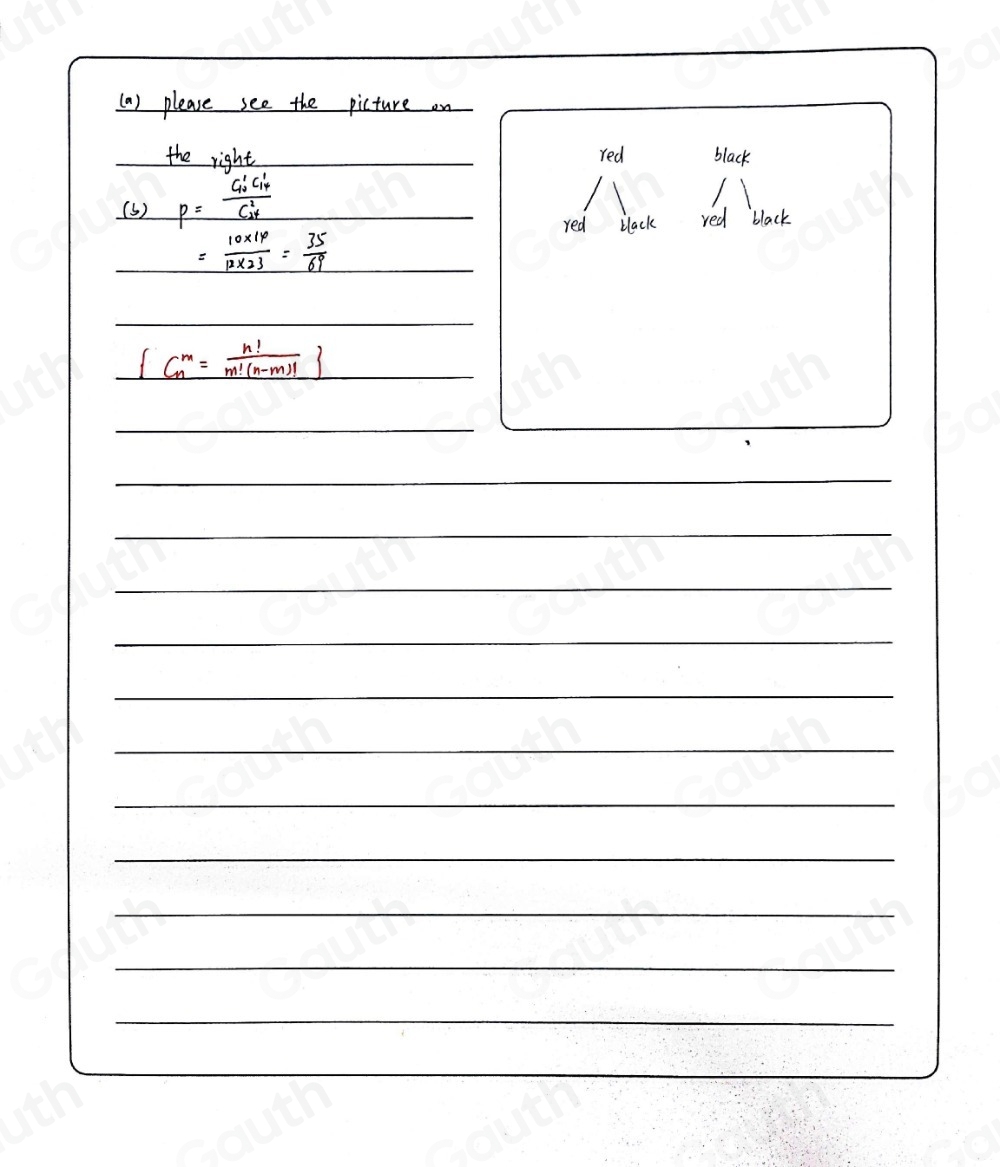 (a) please see the picture on
the right
(b) p = C₁₀¹ C₁₄¹ / C₂₄²
= 10×14 / 12×23 = 35 / 69
{ Cₙᵐ = n! / m!(n-m)! }
red black
red black red black
Gauth